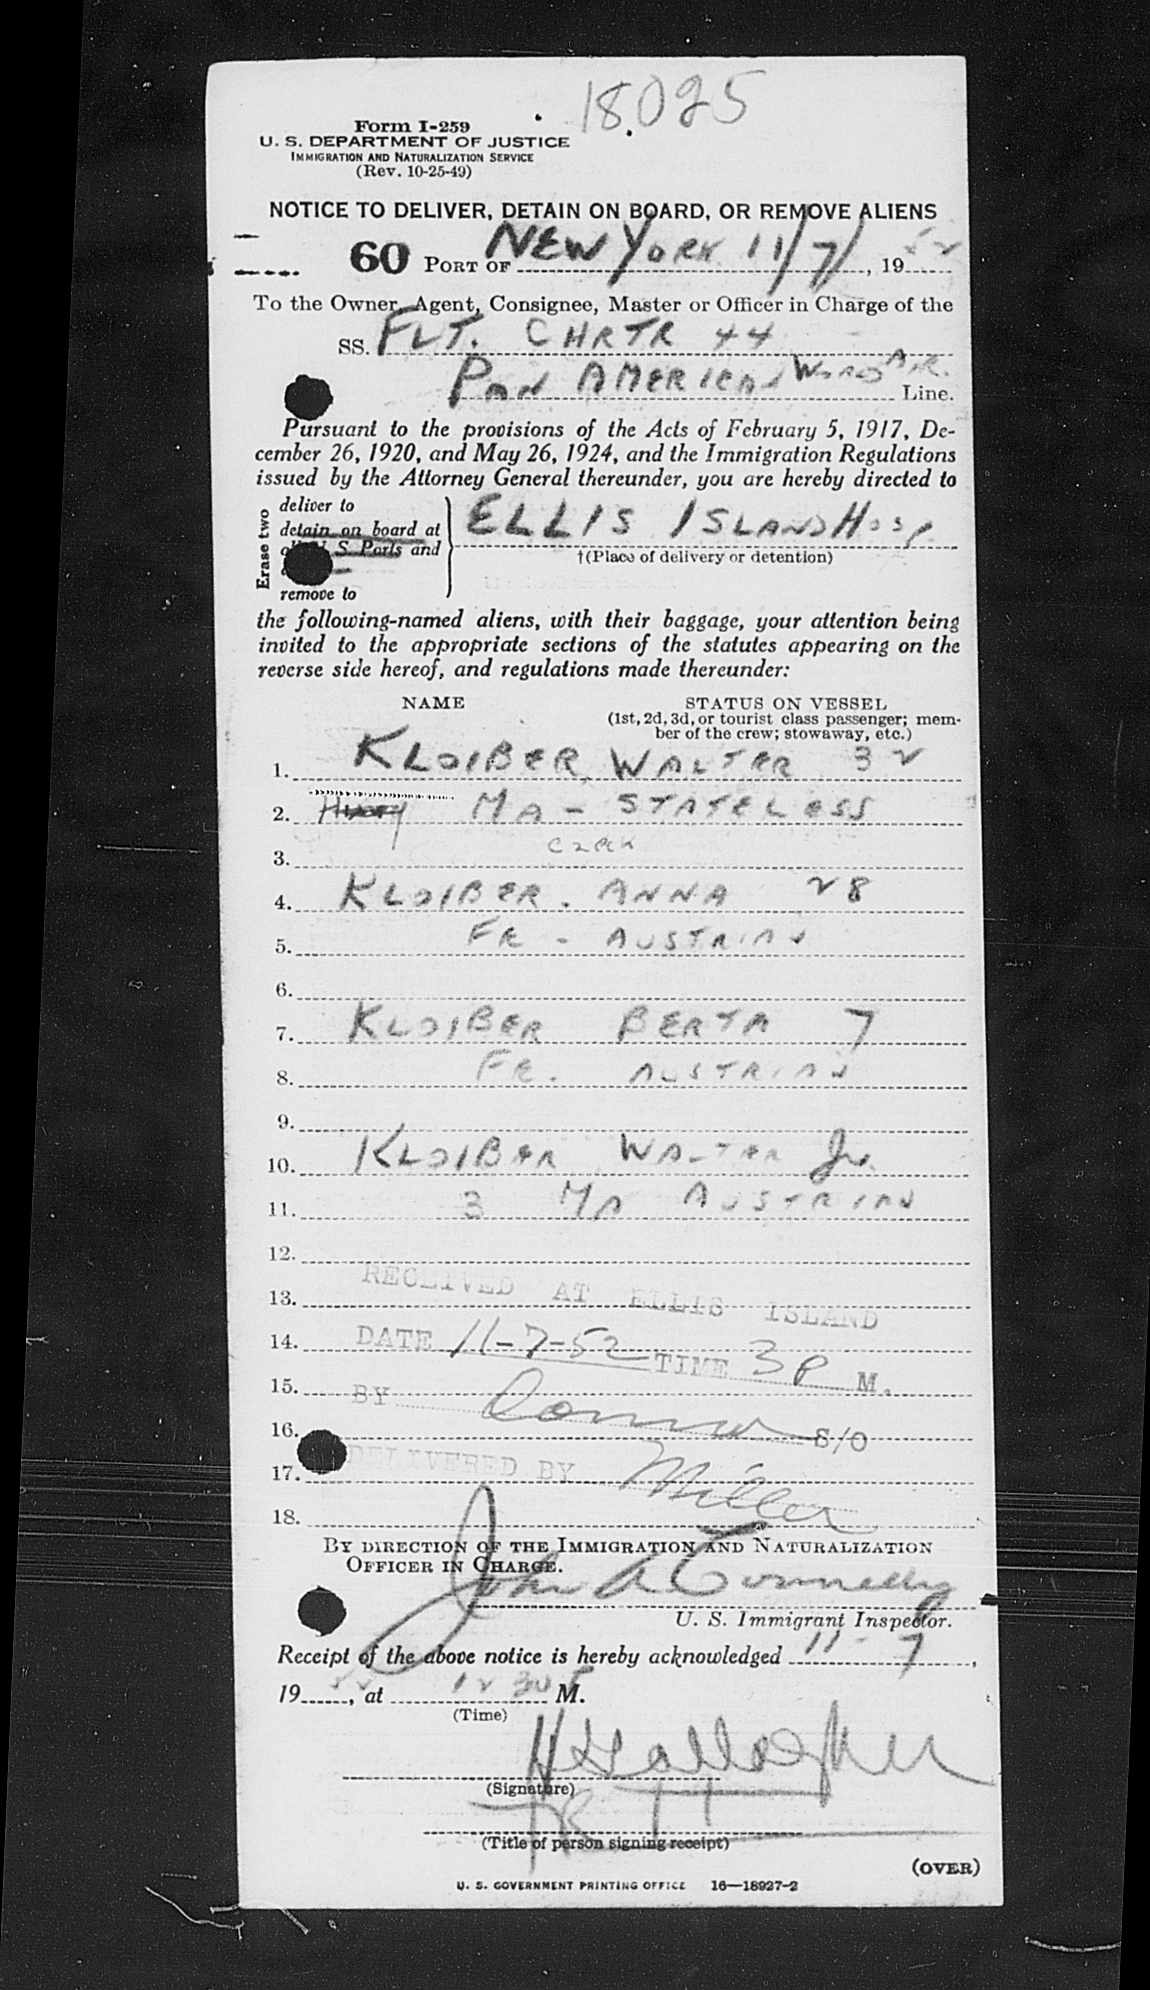 18025
Form I-259
U. S. DEPARTMENT OF JUSTICE
IMMIGRATION AND NATURALIZATION SERVICE
(Rev. 10-25-49)
NOTICE TO DELIVER, DETAIN ON BOARD, OR REMOVE ALIENS
60 PORT OF NEW YORK 11/7/, 1952
To the Owner, Agent, Consignee, Master or Officer in Charge of the
SS. FLT. CHRTR 44
PAN AMERICAN WORLD AIR. Line.
Pursuant to the provisions of the Acts of February 5, 1917, De-
cember 26, 1920, and May 26, 1924, and the Immigration Regulations
issued by the Attorney General thereunder, you are hereby directed to
Erase two
deliver to
detain on board at
U. S. Ports and
remove to
ELLIS ISLAND HOSP
†(Place of delivery or detention)
the following-named aliens, with their baggage, your attention being
invited to the appropriate sections of the statutes appearing on the
reverse side hereof, and regulations made thereunder:
NAME STATUS ON VESSEL
(1st, 2d, 3d, or tourist class passenger; mem-
ber of the crew; stowaway, etc.)
1. KLOIBER, WALTER 32
2. MA - STATELESS
3. CZECK
4. KLOIBER. ANNA 28
5. FE - AUSTRIAN
6.
7. KLOIBER BERTA 7
8. FE. AUSTRIAN
9.
10. KLOIBER WALTER Jr.
11. 3 MA AUSTRIAN
12.
RECEIVED AT ELLIS ISLAND
13.
14. DATE 11-7-52 TIME 3 P M.
15. BY S/O
16.
17. DELIVERED BY Miller
18.
BY DIRECTION OF THE IMMIGRATION AND NATURALIZATION
OFFICER IN CHARGE.
John A Connelly
U. S. Immigrant Inspector.
Receipt of the above notice is hereby acknowledged 11-7,
1952, at 12 30 P M.
(Time)
H Gallagher
(Signature)
(Title of person signing receipt)
(OVER)
U. S. GOVERNMENT PRINTING OFFICE 16—18927-2